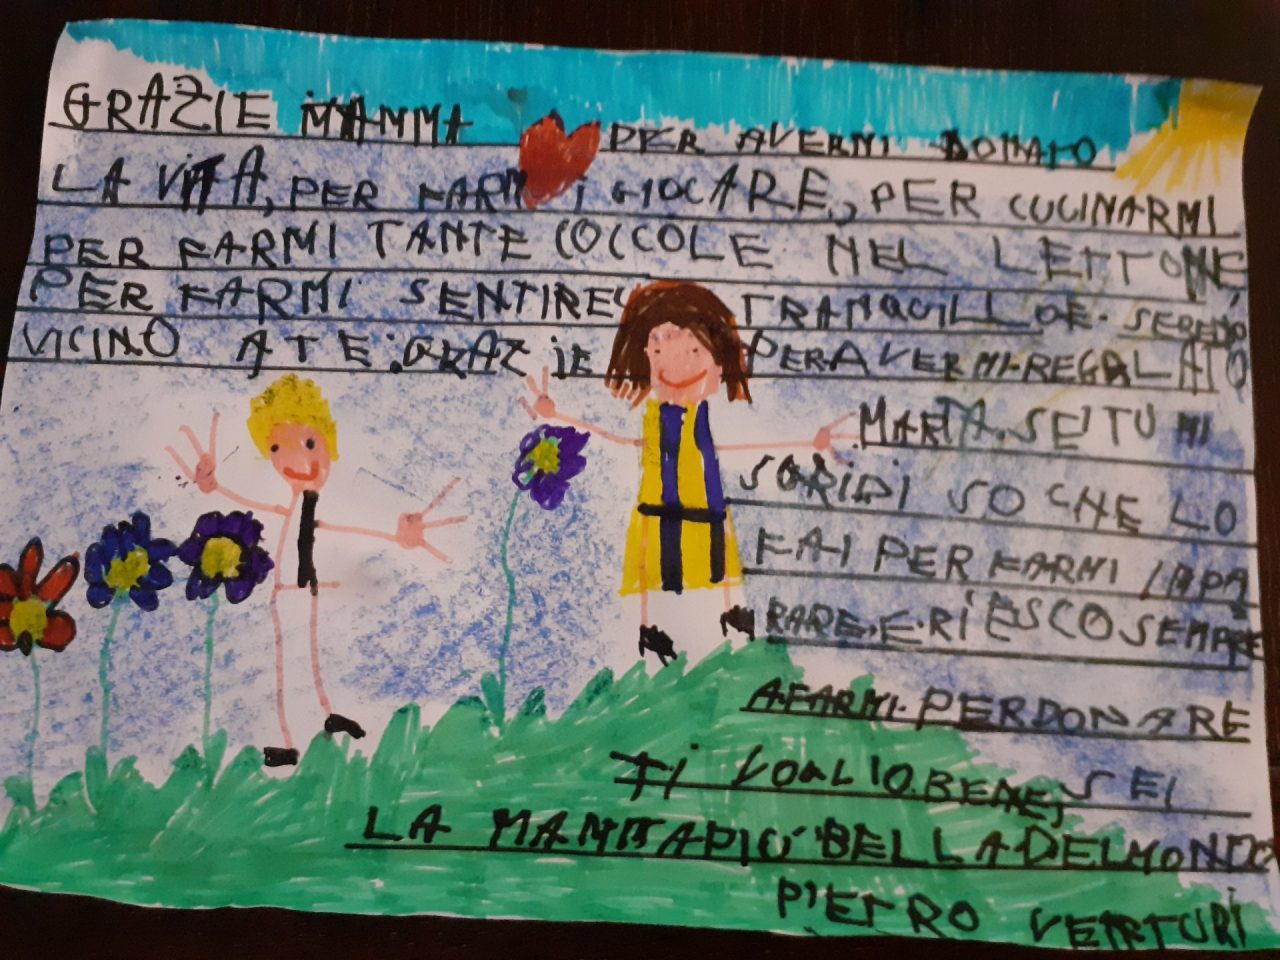 GRAZIE MAMMA PER AVERMI DONATO
LA VITA, PER FARMI GIOCARE, PER CUCINARMI
PER FARMI TANTE COCCOLE NEL LETTONE,
PER FARMI SENTIRE TRANQUILLO E SERENO
VICINO A TE. GRAZIE PER AVERMI REGALATO
MARTA. SE TU MI
SGRIDI SO CHE LO
FAI PER FARMI IMPA
RARE. E RIESCO SEMPRE
A FARMI PERDONARE
TI VOGLIO BENE, SEI
LA MAMMA PIÙ BELLA DEL MONDO
PIETRO